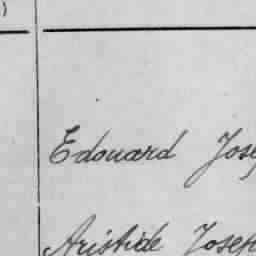 Edouard Jose
Aristide Joseph